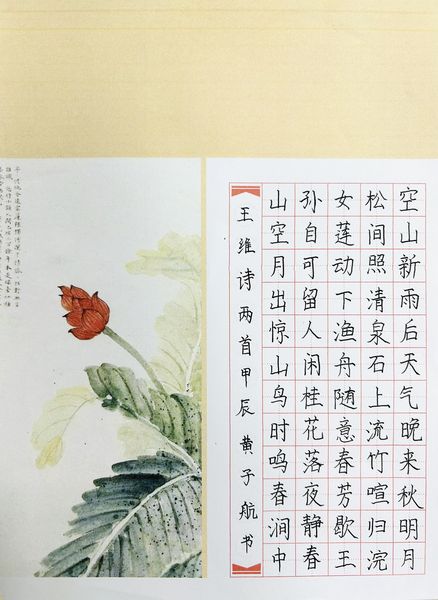 空山新雨后天气晚来秋明月
松间照清泉石上流竹喧归浣
女莲动下渔舟随意春芳歇王
孙自可留人闲桂花落夜静春
山空月出惊山鸟时鸣春涧中
王维诗两首甲辰 黄子航书